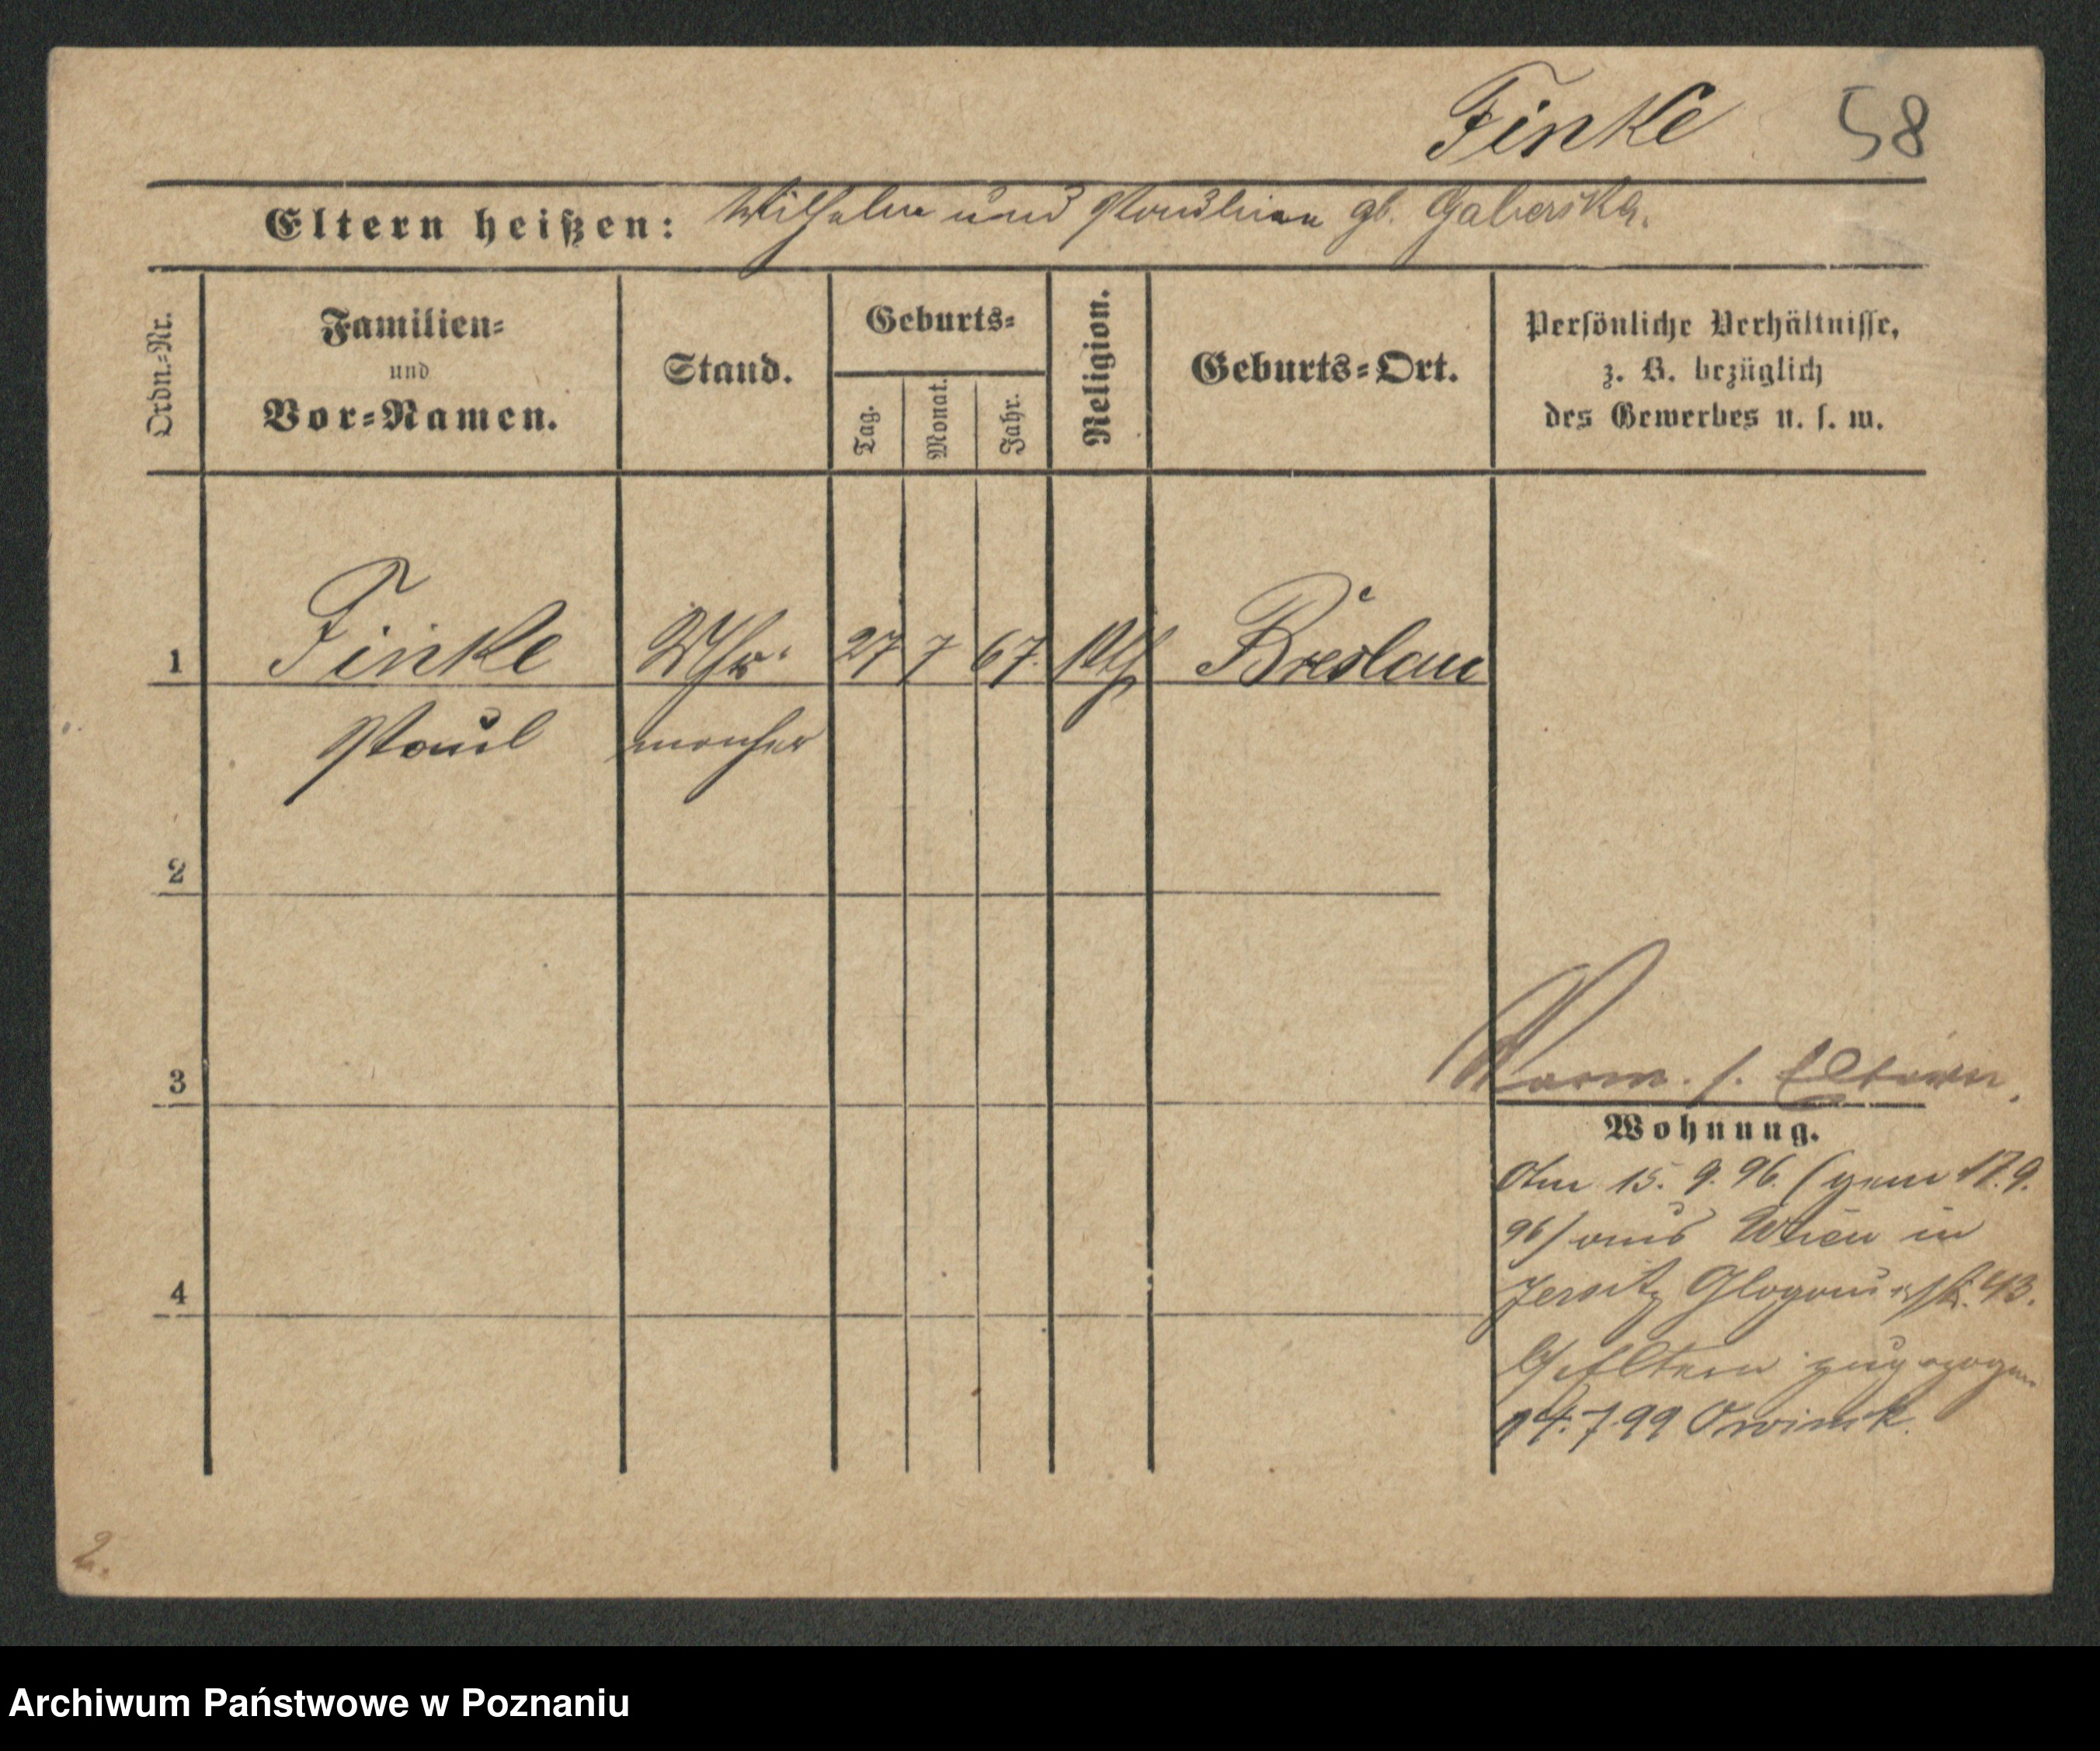 Finke 58
Eltern heißen: Wilhelm und Pauline gb. Gaberska.
Ordn.-Nr.
Familien-
und
Vor-Namen.
Stand.
Geburts-
Tag.
Monat.
Jahr.
Religion.
Geburts-Ort.
Persönliche Verhältnisse,
z. B. bezüglich
des Gewerbes u. s. w.
1 Finke Uhr- 27 7 67. Kth Breslau
Paul macher
2
3
4
s. Eltern.
Wohnung.
Am 15. 9. 96. (gem 17. 9.
96) aus Wien in
Jersitz Glogauerstr. 43.
Eltern zugezogen
14. 7 99 Owinsk.
2.
Archiwum Państwowe w Poznaniu